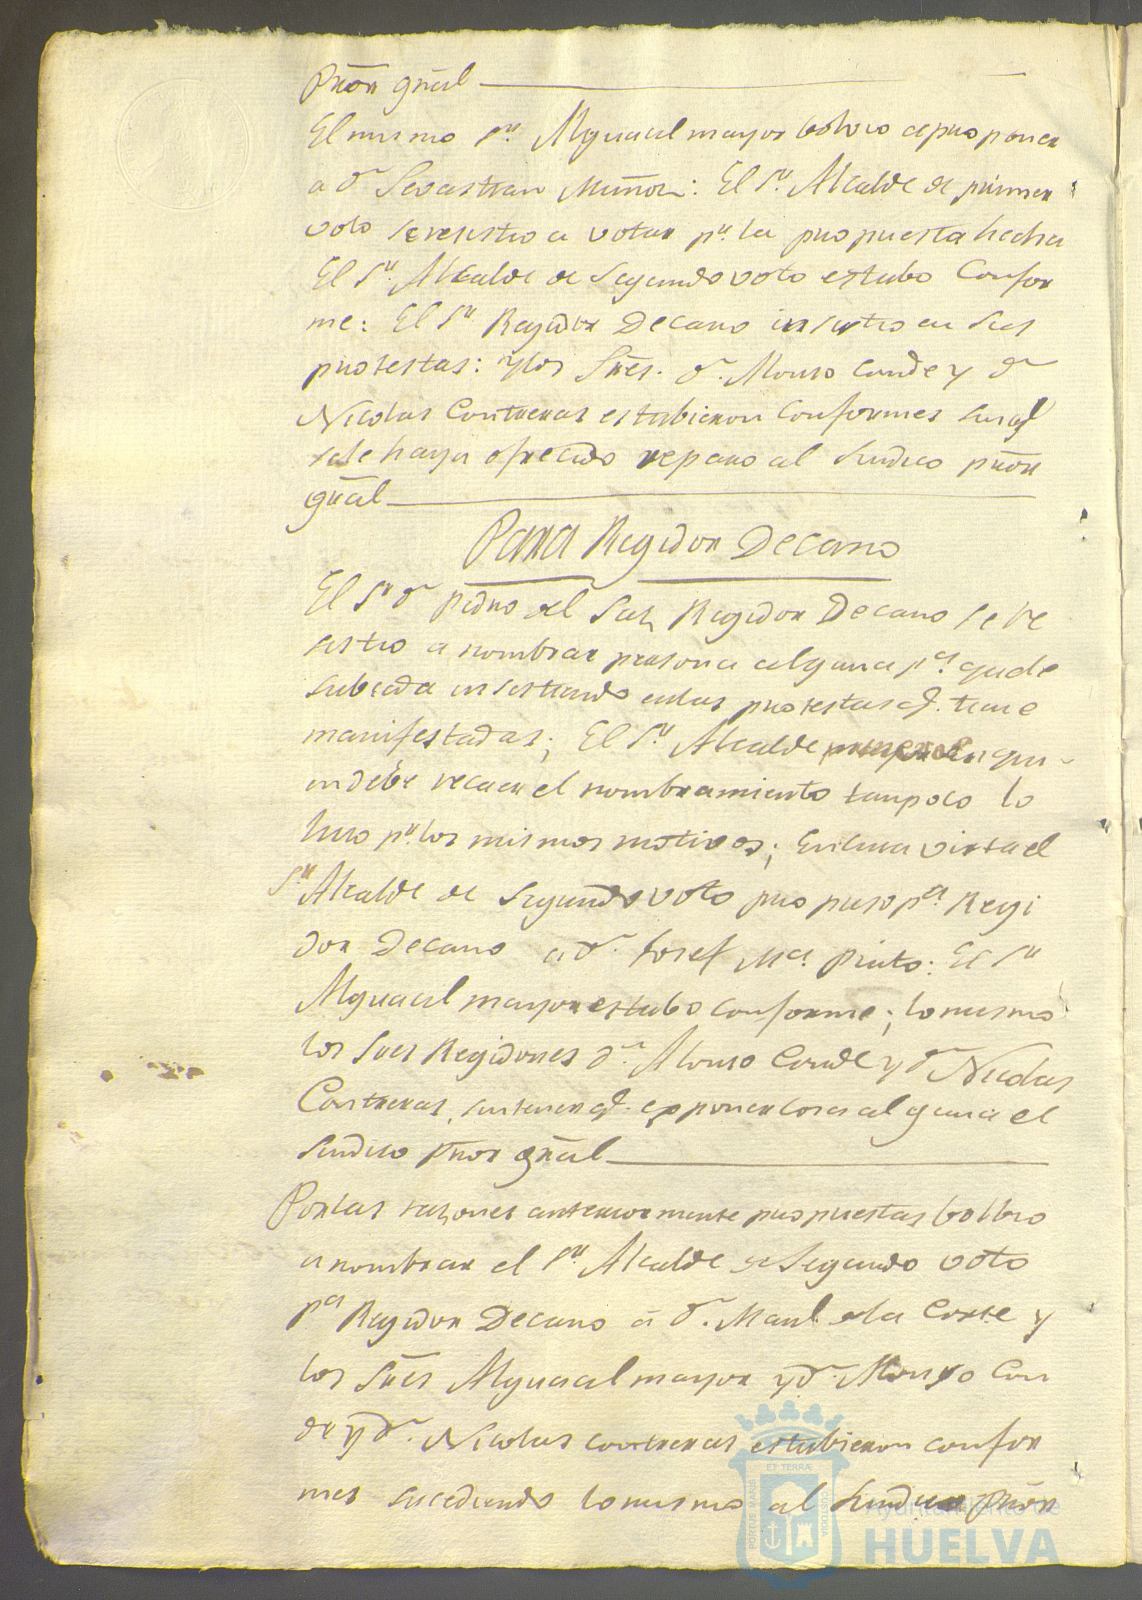 Pror gral
El mismo Sr. Alguacil mayor bolvio a proponer
a Dn Sevastian Muñoz: El Sr. Alcalde de primer
voto se resistio a votar pr. la propuesta hecha
El Sr. Alcalde de Segundo voto estubo Confor
me: El Sr Regidor Decano insistio en sus
protestas: y los Sres. Dn. Alonso Conde y Dn
Nicolas Contreras estubieron Conformes sin q
se le haya ofrecido reparo al Sindico pror
gral
Para Regidor Decano
El Sr Dn Pedro del Saz Regidor Decano se re
sistio a nombrar persona alguna pa. que le
subceda insistiendo en las protestas q. tiene
manifestadas; El Sr. Alcalde en qui
en debe recaer el nombramiento tampoco lo
hiso pr. los mismos motivos; En cuia virtud el
Sr Alcalde de Segundo voto propuso pa. Regi
dor Decano a Dn. Josef Ma. Pinto: El Sr
Alguacil mayor estubo conforme; lo mismo
los Sres Regidores Dn. Alonso Conde y Dn Nicolas
Contreras, sin tener q. exponer cosa alguna el
Sindico pror gral
Por las razones anteriormente propuestas bolbio
a nombrar el Sr. Alcalde de Segundo voto
pa Regidor Decano á Dn. Manl. de la Corte y
los Sres Alguacil mayor y Dn. Alonso Con
de y Dn. Nicolas Contreras estubieron confor
mes sucediendo lo mismo al Sindico pror
PORTUS MARIS
ET TERRÆ
CUSTODIA
Ayuntamiento de
HUELVA